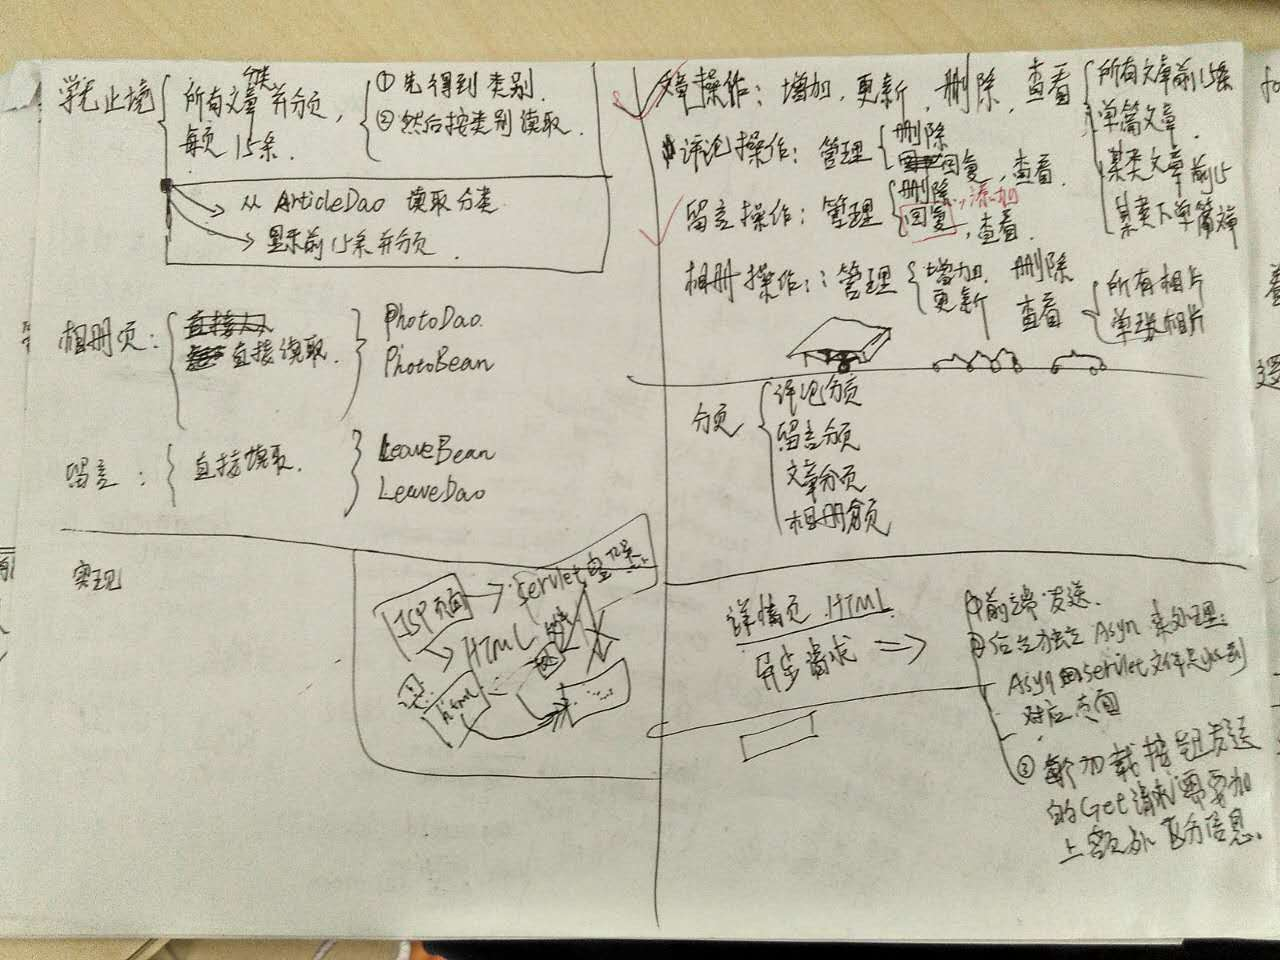 学无止境
分类
所有文章并分页,
每页15条.
①先得到类别.
②然后按类别读取.
从 ArticleDao 读取分类
显示前15条并分页.
相册页:
直接读取.
PhotoDao.
PhotoBean
留言:
直接读取.
LeaveBean
LeaveDao
实现
JSP页面
Servlet
HTML
html
文章操作: 增加, 更新, 删除, 查看
所有文章前15条
单篇文章.
某类文章前15
某类下单篇文章
评论操作: 管理
删除
回复, 查看.
留言操作: 管理
删除
回复, 查看.
添加
相册操作: 管理
增加, 删除
更新 查看
所有相片
单张相片
分页
评论分页
留言分页
文章分页
相册分页
详情页.HTML
异步请求
①前端发送.
②后台独立Asyn来处理:
Asyn的servlet文件
对应页面
③ 加载按钮发送
的Get请求需要加
上额外区分信息.